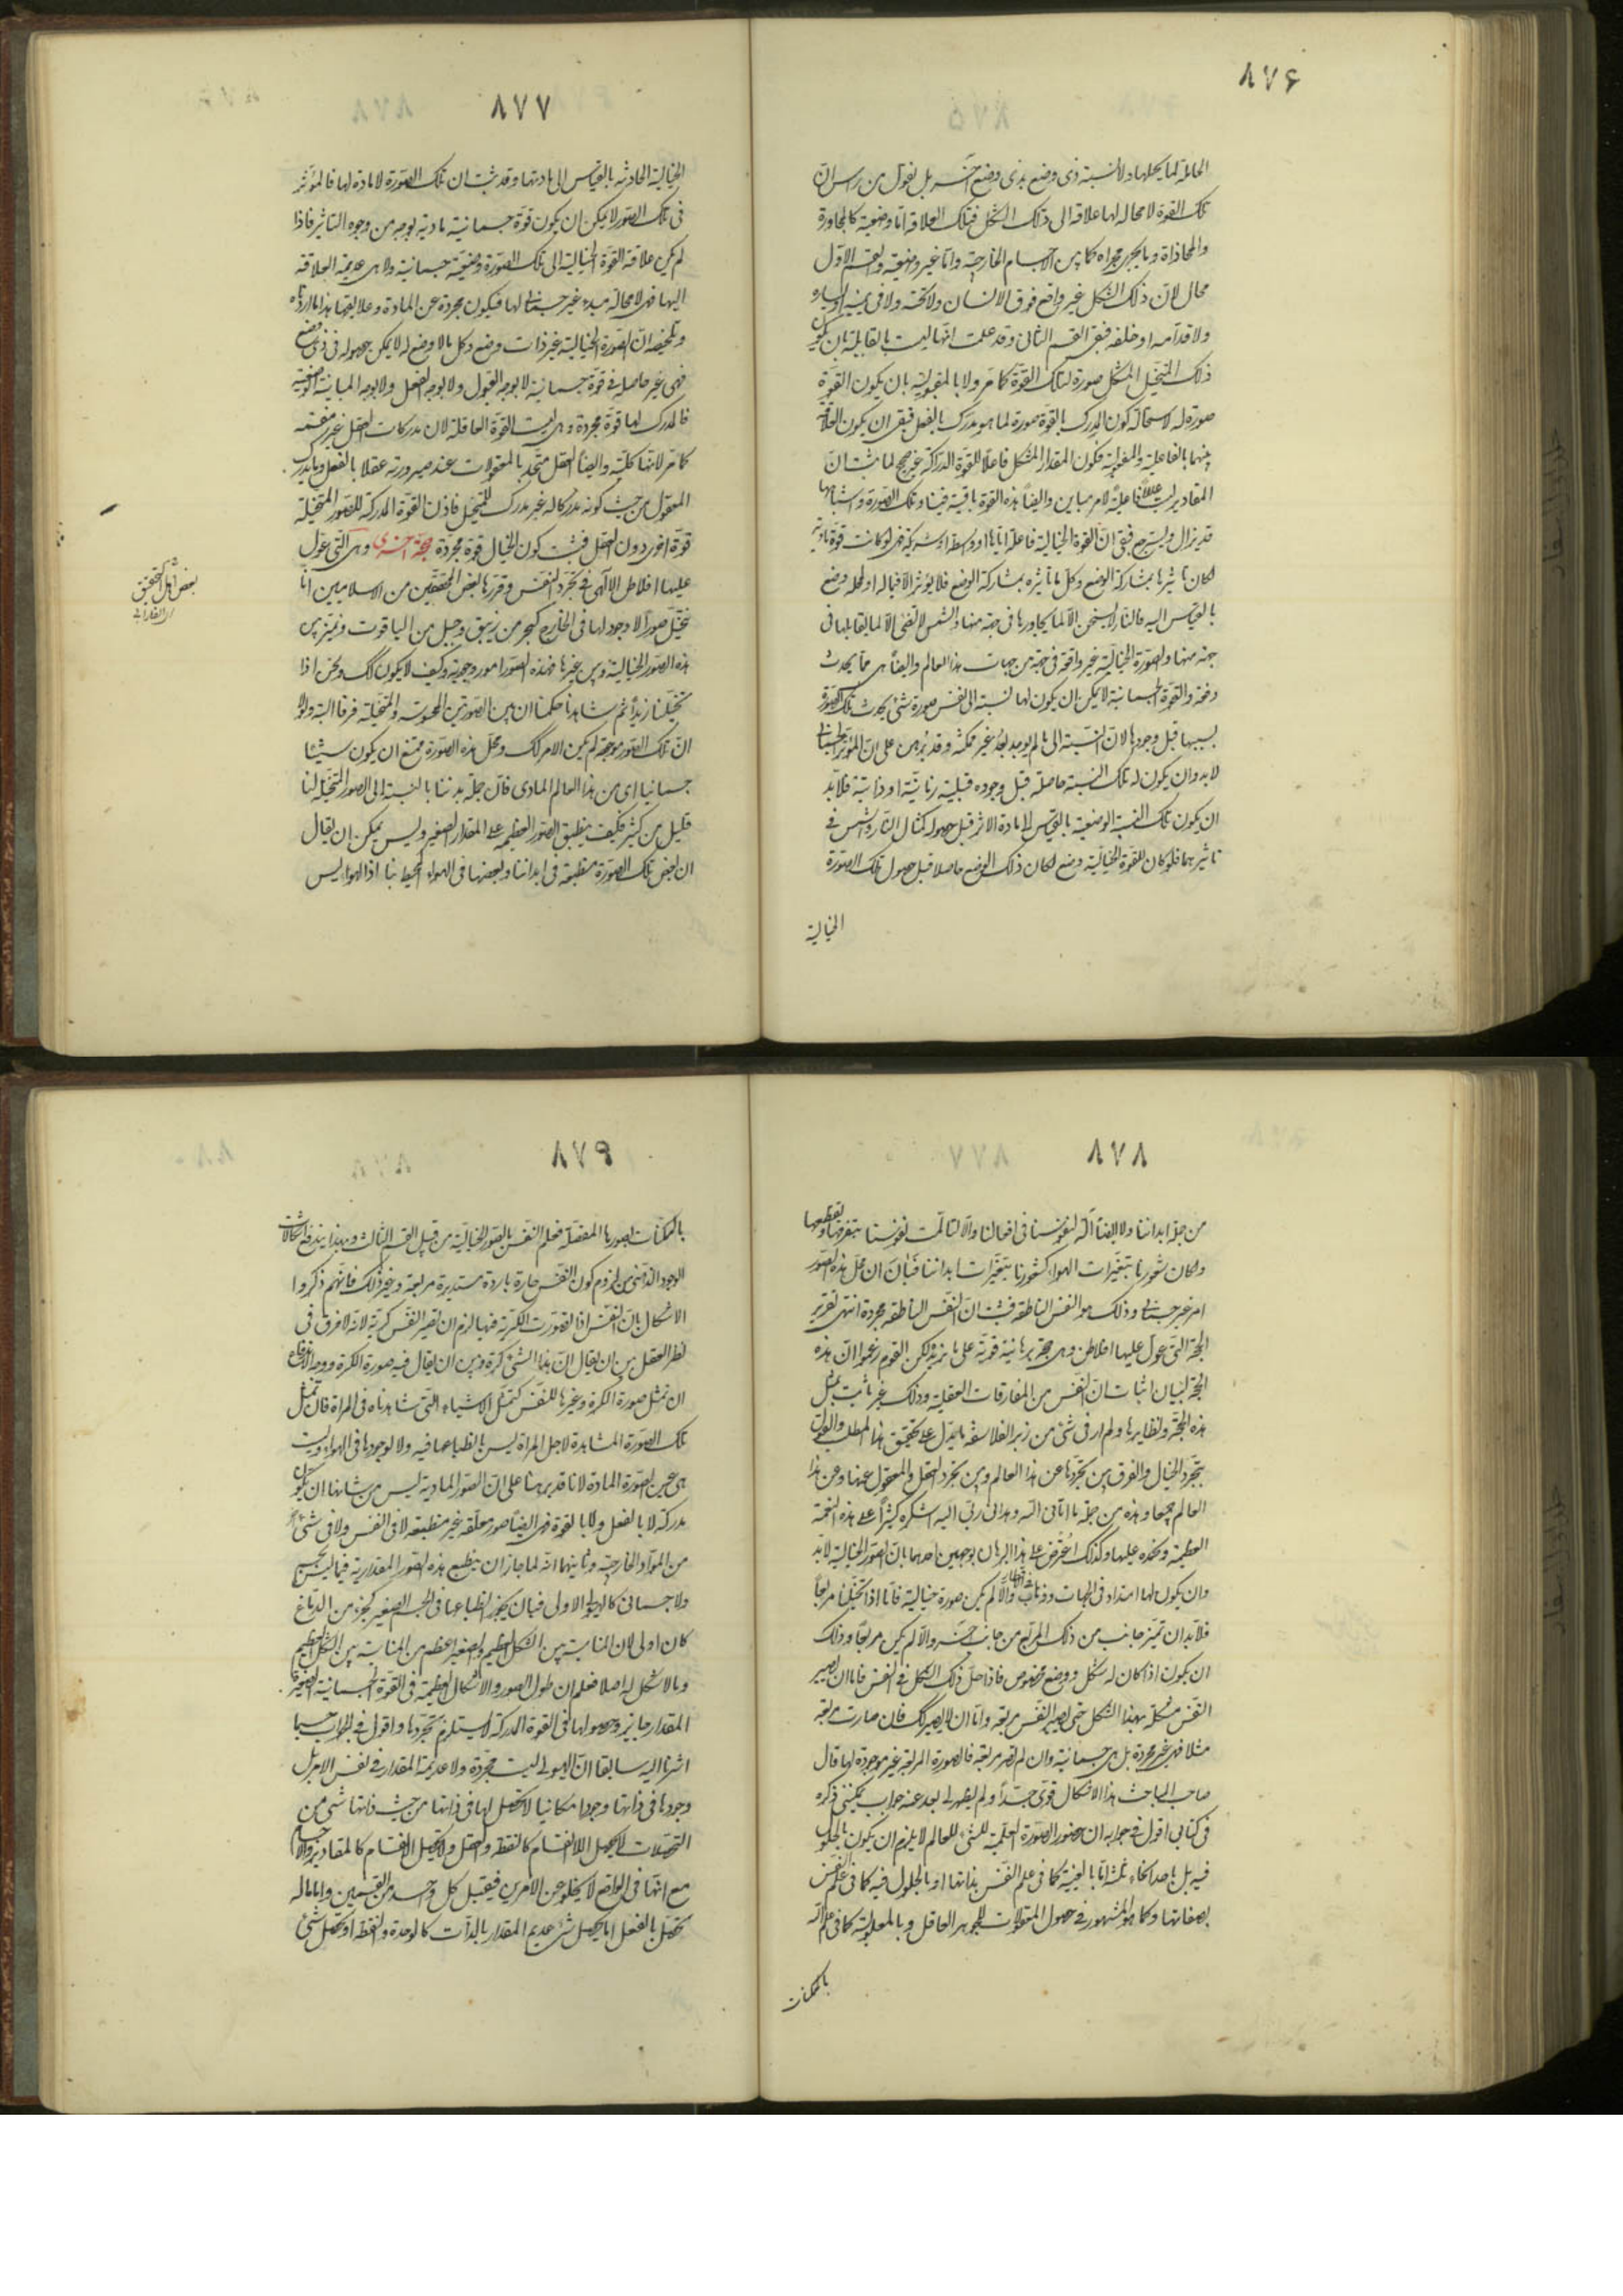 ٨٧۶
الحاملة لما يحلها ولا نسبة ذى وضع بذى وضع آخر بل نقول من راس ان
تلك القوة لا محالة لها علاقة الى ذلك الشكل فتلك العلاقة اما وضعية كالمجاورة
والمحاذاة وما يجرى مجراه كما بين الاجسام الخارجية واما غير وضعية والقسم الاول
محال لان ذلك الشكل غير واقع فوق الانسان ولا تحته ولا فى يمينه او يساره
ولا قدامه او خلفه فبقى القسم الثانى وقد علمت انها ليست بالقابلية بان يكون
ذلك المتخيل المشكل صورة لتلك القوة كما مر ولا بالمقبولية بان يكون القوة
صورة له لاستحالة كون المدرك بالقوة صورة لما هو مدرك بالفعل فبقى ان يكون العلاقة
بينهما بالفاعلية والمفعولية فكون المقدار المشكل فاعلا للقوة الدراكة غير صحيح لما ثبت ان
المقادير ليست عللا فاعلية لامر مباين وايضا هذه القوة باقية فينا وتلك الصورة واشباهها
قد يزال ويسترجع فبقى ان القوة الخيالية فاعلة اياها او واسطة او شريكة فهى لو كانت قوة مادية
لكان تاثيرها بمشاركة الوضع وكل ما تاثيره بمشاركة الوضع فلا يؤثر الا فيما له او لمحله وضع
بالقياس اليه فالنار لا يسخن الا لما يجاورها فى جهة منها والشمس لا تضئ الا لما يقابلها فى
جهة منها والصورة الخيالية غير واقعة فى جهة من جهات هذا العالم وايضا هى مما يحدث
دفعة والقوة الجسمانية لا يمكن ان يكون لها نسبة الى نفس صورة شئ يحدث تلك الصورة
بسببها قبل وجودها لان النسبة الى ما لم يوجد بعد غير ممكنة وقد برهن على ان المؤثر الجسمانى
لا بد وان يكون له تلك النسبة حاصلة قبل وجوده قبلية زمانية او ذاتية فلا بد
ان يكون تلك النسبة الوضعية بالقياس الى مادة الاثر قبل حصوله كمثال النار والشمس فى
تاثيرهما فلو كان للقوة الخيالية وضع لكان ذلك الوضع حاصلا قبل حصول تلك الصورة
الخيالية
٨٧٧
الخيالية الحادثة بالقياس الى مادتها وقد ثبت ان تلك الصورة لا مادة لها فالمؤثر
فى تلك الصور لا يمكن ان يكون قوة جسمانية مادية بوجه من وجوه التاثير فاذا
لم يكن علاقة القوة الخيالية الى تلك الصورة وضعية جسمانية ولا هى عديمة العلاقة
اليها فهى لا محالة مبدء غير جسمانى لها فيكون مجردة عن المادة وعلايقها هذا ما اردناه
وتلخيصه ان الصورة الخيالية غير ذات وضع وكل ما لا وضع له لا يمكن حصوله فى ذى وضع
فهى غير حاصلة فى قوة جسمانية لا بوجه القبول ولا بوجه الفعل ولا بوجه المباينة الوضعية
فالمدرك لها قوة مجردة وهى ليست القوة العاقلة لان مدركات العقل غير منقسمة
كما مر لانها كلية وايضا العقل متحد بالمعقولات عند صيرورته عقلا بالفعل وما يدرك
المعقول من حيث كونه مدركا له غير مدرك للتخيل فاذن القوة المدركة للصور المتخيلة
قوة اخرى دون العقل فثبت كون الخيال قوة مجردة حجة اخرى وهى التى عول
عليها افلاطن الالهى فى تجرد النفس وقررها بعض المحققين من الاسلاميين انا
نتخيل صورا لا وجود لها فى الخارج كبحر من زيبق وجبل من الياقوت ونميز بين
هذه الصور الخيالية وبين غيرها فهذه الصور امور وجودية وكيف لا يكون كك ونحن اذا
تخيلنا زيدا ثم شاهدناه حكمنا ان بين الصورتين المحسوسة والمتخيلة فرقا البتة ولولا
ان تلك الصور موجودة لم يكن الامر كك ومحل هذه الصورة يمتنع ان يكون شيئا
جسمانيا اى من هذا العالم المادى فان جملة بدننا بالنسبة الى الصور المتخيلة لنا
قليل من كثير فكيف ينطبق الصور العظيمة على المقدار الصغير وليس يمكن ان يقال
ان بعض تلك الصورة منطبعة فى ابداننا وبعضها فى الهواء المحيط بنا اذ الهواء ليس
بعض اهل التحقيق
٨٧٨
من جملة ابداننا ولا ايضا آلة لنفوسنا فى افعالنا والا لتالمت نفوسنا بتفرقها وتقطعها
ولكان شعورنا بتغيرات الهواء كشعورنا بتغيرات ابداننا فبان ان محل هذه الصور
امر غير جسمانى وذلك هو النفس الناطقة فثبت ان النفس الناطقة مجردة انتهى تقرير
الحجة التى عول عليها افلاطن وهى حجة برهانية قوية على ما نريد ولكن القوم زعموا ان هذه
الحجة لبيان اثبات ان النفس من المفارقات العقلية وذلك غير ثابت بمثل
هذه الحجة ونظايرها ولم ار فى شئ من زبر الفلاسفة ما يدل على تحقيق هذا المطلب والقول
بتجرد الخيال والفرق بين تجردها عن هذا العالم وبين تجرد العقل والمعقول عنها وعن هذا
العالم جميعا وهذه من جملة ما اتانى الله وهدانى ربى اليه اشكره كثيرا على هذه النعمة
العظيمة ونحمده عليها وكذلك اعترض على هذا البرهان بوجهين احدهما بان الصور الخيالية لا بد
وان يكون لها امتداد فى الجهات وذهاب والا لم يكن صورة خيالية فانا اذا تخيلنا مربعا
فلا بد ان تميز جانب من ذلك المربع من جانب آخر والا لم يكن مربعا وذلك
ان يكون اذا كان له شكل ووضع مخصوص فاذا حل ذلك الشكل فى النفس فاما ان يصير
النفس مشكلة بهذا الشكل حتى يصير النفس مربعة واما ان لا يصير كك فان صارت مربعة
مثلا فهى غير مجردة بل هى جسمانية وان لم تصر مربعة فالصورة المربعة غير موجودة لها قال
صاحب المباحث هذا الاشكال قوى جدا ولم يظهر لى بعد عنه جواب يمكننى ذكره
فى كتابى اقول فى جوابه ان حضور الصورة العلمية للشئ للعالم لا يلزم ان يكون بالحلول
فيه بل باحد انحاء ثلثة اما بالعينية كما فى علم النفس بذاتها او بالحلول فيه كما فى علم النفس
بصفاتها وكما هو المشهور فى حصول المعقولات للجوهر العاقل وبالمعلولية كما فى علم الله
بالممكنات
٨٧٩
بالممكنات بصورها المفصلة فعلم النفس بالصور الخيالية من قبيل القسم الثالث وبهذا يندفع اشكالات
الوجود الذهنى من لزوم كون النفس حارة باردة مستديرة مربعة وغير ذلك فانهم ذكروا
الاشكال بان النفس اذا تصورت الكرية فيها يلزم ان تصير النفس كرية لانه لا فرق فى
نظر العقل بين ان يقال ان هذا الشئ كرة وبين ان يقال فيه صورة الكرة ووجه الاندفاع
ان تمثل صورة الكرة وغيرها للنفس كتمثل الاشياء التى شاهدناه فى المراة فان تمثل
تلك الصورة المشاهدة لاجل المراة ليس بانطباعها فيه ولا لوجودها فى الهواء وليست
هى عين الصورة المادة لانا قد برهنا على ان الصور المادية ليس من شانها ان يكون
مدركة لا بالفعل ولا بالقوة فهى ايضا صور معلقة غير منطبعة لا فى النفس ولا فى شئ
من المواد الخارجية وثانيهما انه لما جاز ان ينطبع هذه الصور المقدارية فيما ليس بجسم
ولا جسمانى كالهيولى الاولى فبان يجوز انطباعها فى الجسم الصغير كجزء من الدماغ
كان اولى لان المناسبة بين الشكل العظيم والصغير اعظم من المناسبة بين الشكل العظيم
وما لا شكل له اصلا فعلم ان حلول الصور والاشكال العظيمة فى القوة الجسمانية الصغيرة
المقدار جايز وحصولها فى القوة المدركة لا يستلزم تجردها واقول فى الجواب حسبما
اشرنا اليه سابقا ان الهيولى ليست مجردة ولا عديمة المقدار فى نفس الامر بل
وجودها فى ذاتها وجودا امكانيا لا تحصل لها فى ذاتها من حيث ذاتها شئ من
التحصلات لا تحصل اللا انقسام كالنقطة والعقل ولا تحصل الانقسام كالمقادير والاجسام
مع انها فى الواقع لا يخلو عن الامرين فيقبل كل واحد من القسمين واما ما له
تحصل بالفعل اما تحصل شئ عديم المقدار بالذات كالوحدة والنقطة او تحصل شئ